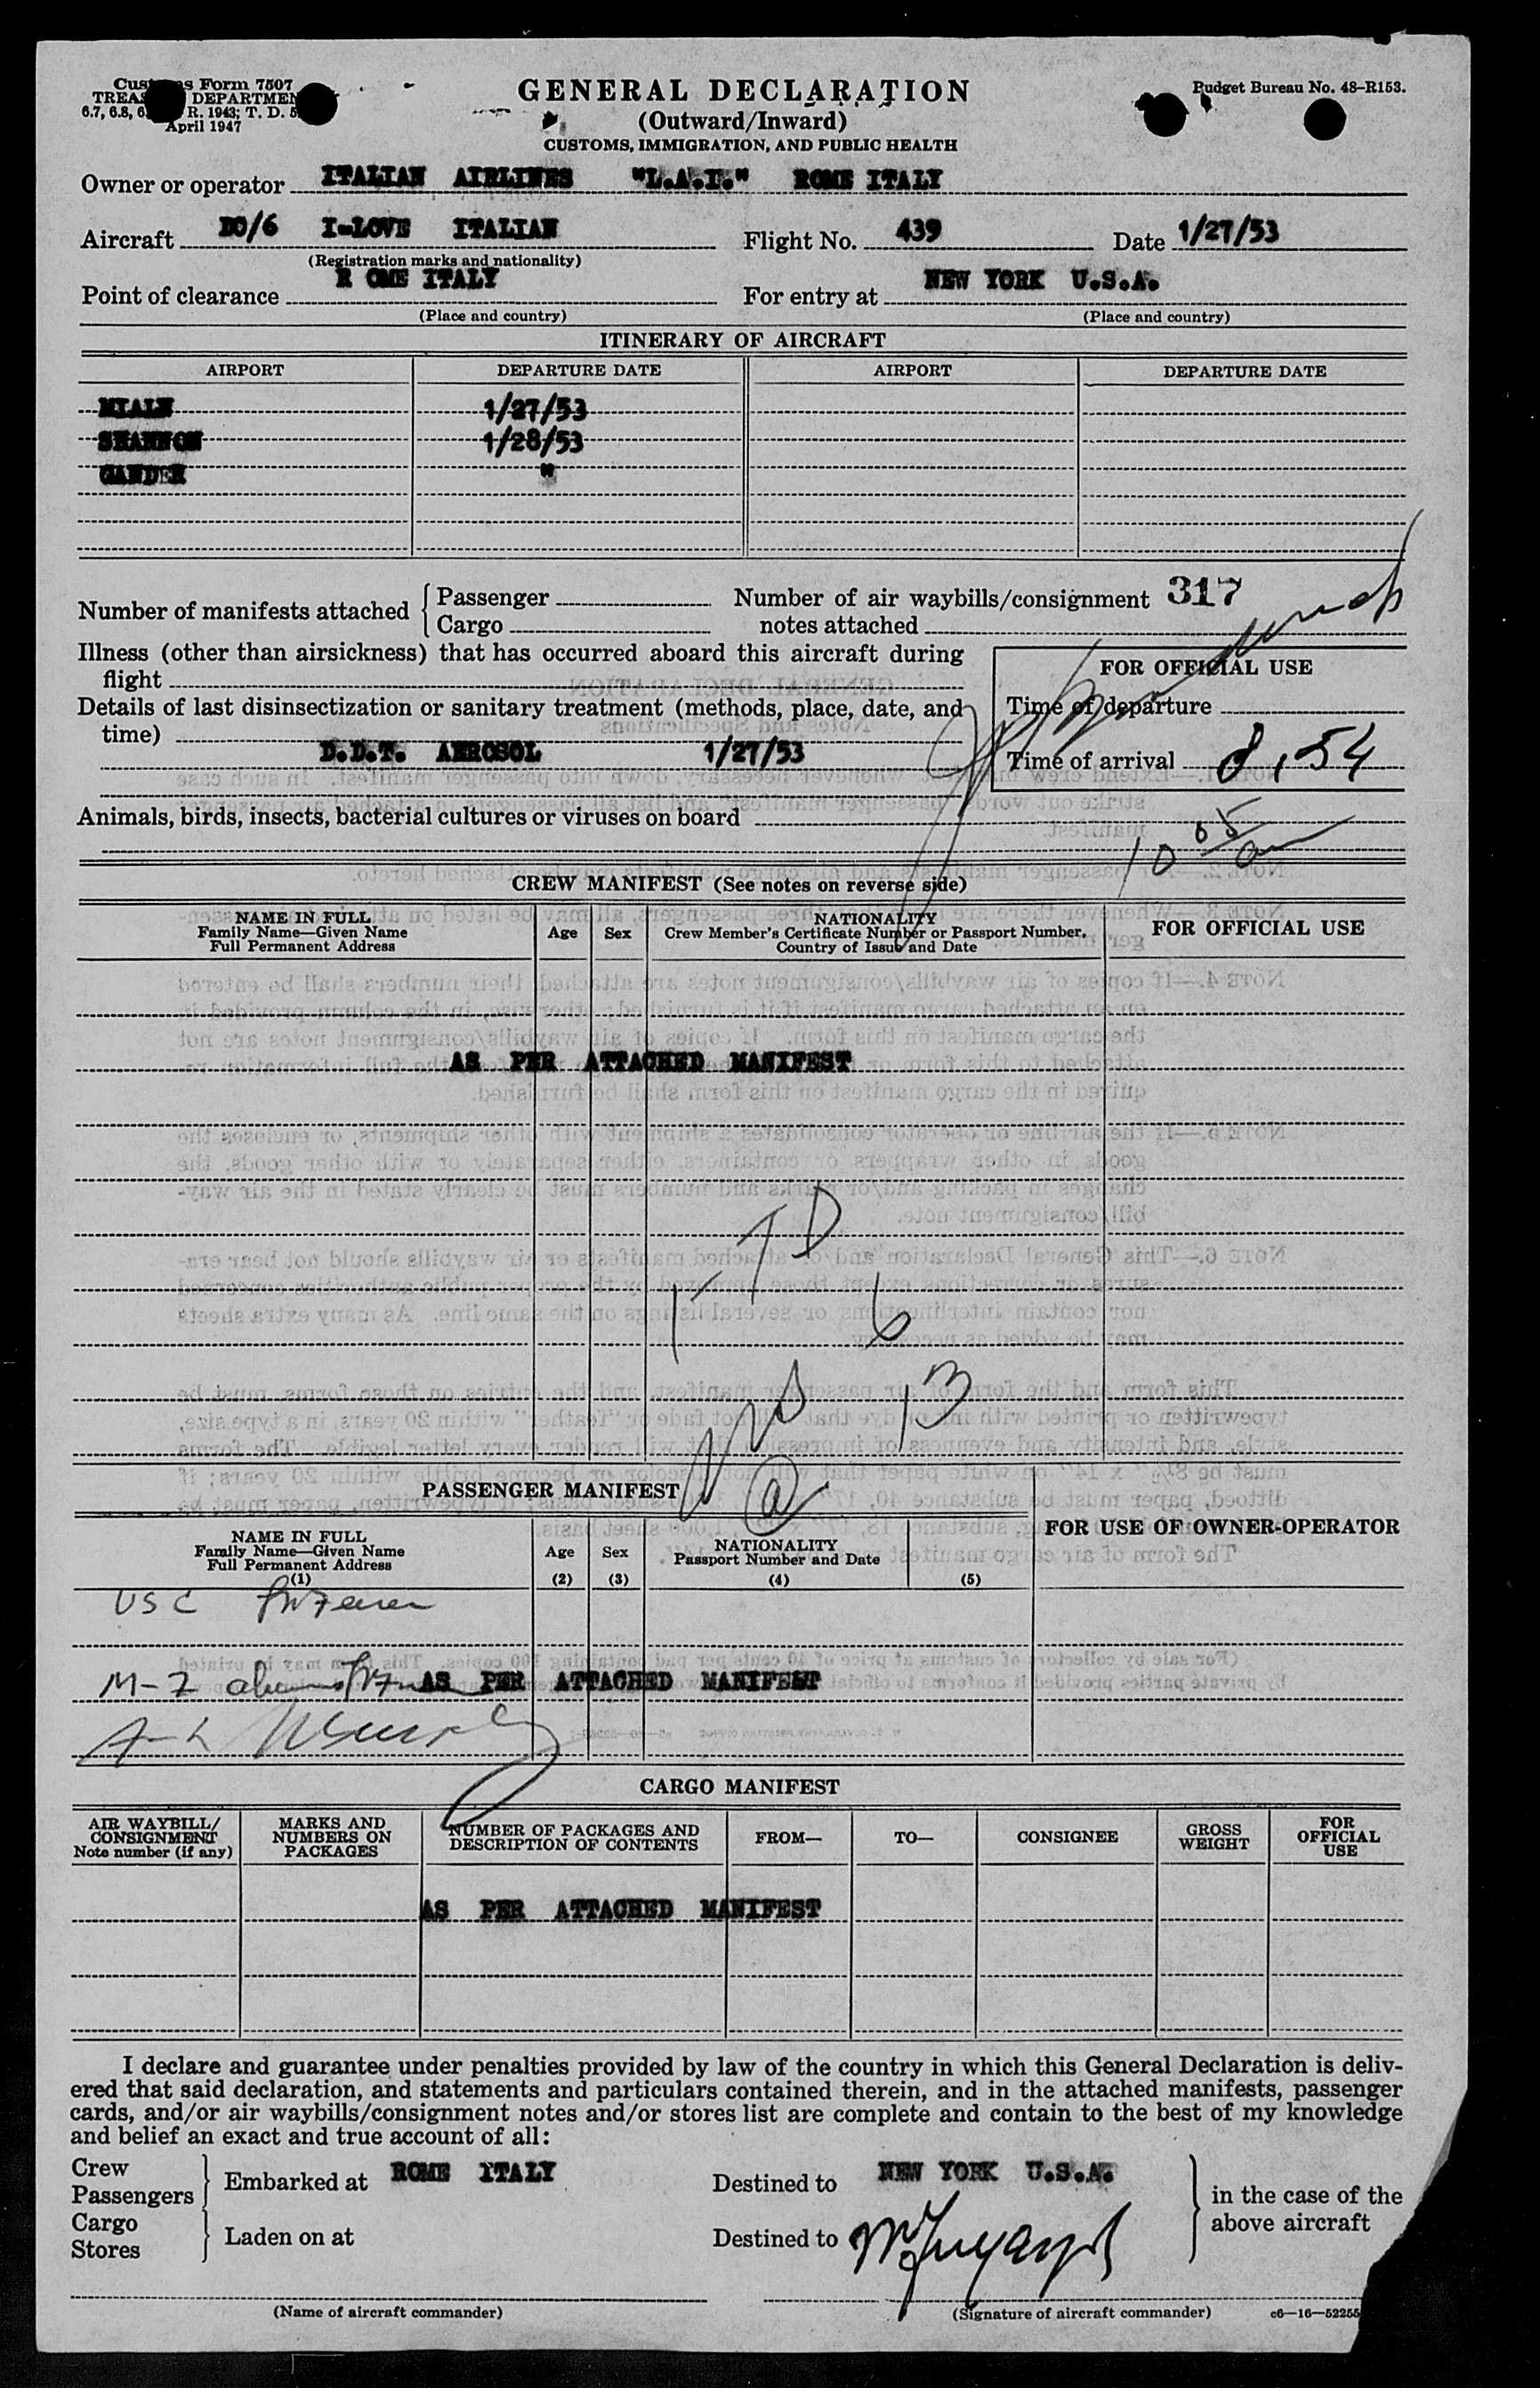 Customs Form 7507
TREASURY DEPARTMENT
6.7, 6.8, 6. R. 1943; T. D. 5
April 1947
GENERAL DECLARATION
(Outward/Inward)
CUSTOMS, IMMIGRATION, AND PUBLIC HEALTH
Budget Bureau No. 48-R153.
Owner or operator ITALIAN AIRLINES "L.A.I." ROME ITALY
Aircraft DC/6 I-LOVE ITALIAN Flight No. 439 Date 1/27/53
(Registration marks and nationality)
Point of clearance R OME ITALY For entry at NEW YORK U.S.A.
(Place and country) (Place and country)
ITINERARY OF AIRCRAFT
AIRPORT DEPARTURE DATE AIRPORT DEPARTURE DATE
MIALN 1/27/53
SHANNON 1/28/53
GANDER "
Number of manifests attached { Passenger Number of air waybills/consignment 317
Cargo notes attached
Illness (other than airsickness) that has occurred aboard this aircraft during
flight
FOR OFFICIAL USE
Details of last disinsectization or sanitary treatment (methods, place, date, and
time)
Time of departure
D.D.T. AEROSOL 1/27/53
Time of arrival 8,54
Animals, birds, insects, bacterial cultures or viruses on board
10 05 am
CREW MANIFEST (See notes on reverse side)
NAME IN FULL
Family Name—Given Name
Full Permanent Address
Age Sex
NATIONALITY
Crew Member's Certificate Number or Passport Number,
Country of Issue and Date
FOR OFFICIAL USE
AS PER ATTACHED MANIFEST
1-TD
6
13
PASSENGER MANIFEST
NAME IN FULL
Family Name—Given Name
Full Permanent Address
(1)
Age
(2)
Sex
(3)
NATIONALITY
Passport Number and Date
(4) (5)
FOR USE OF OWNER-OPERATOR
USC
M-Z AS PER ATTACHED MANIFEST
A-L
CARGO MANIFEST
AIR WAYBILL/
CONSIGNMENT
Note number (if any)
MARKS AND
NUMBERS ON
PACKAGES
NUMBER OF PACKAGES AND
DESCRIPTION OF CONTENTS
FROM—
TO—
CONSIGNEE
GROSS
WEIGHT
FOR
OFFICIAL
USE
AS PER ATTACHED MANIFEST
I declare and guarantee under penalties provided by law of the country in which this General Declaration is deliv-
ered that said declaration, and statements and particulars contained therein, and in the attached manifests, passenger
cards, and/or air waybills/consignment notes and/or stores list are complete and contain to the best of my knowledge
and belief an exact and true account of all:
Crew
Passengers } Embarked at ROME ITALY Destined to NEW YORK U.S.A.
Cargo
Stores } Laden on at Destined to
in the case of the
above aircraft
(Name of aircraft commander) (Signature of aircraft commander) c6—16—52255